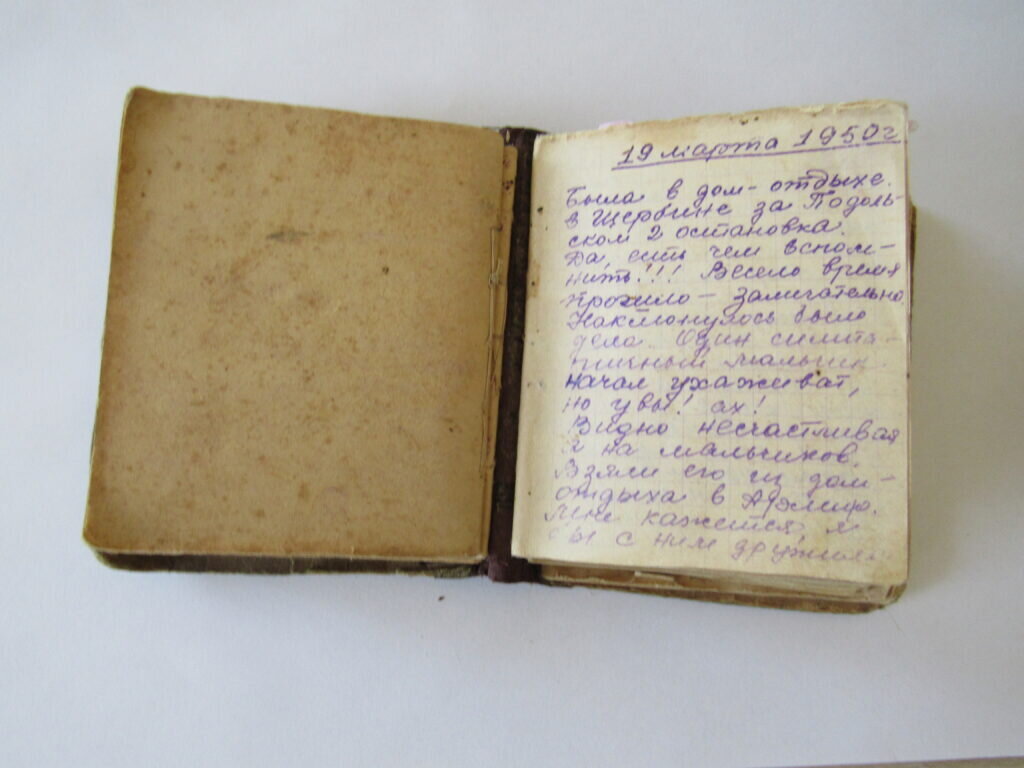 19 марта 1950 г
Была в дом-отдыхе.
в Щербинс за Подоль-
ском 2 остановка.
Да, есть чем вспом-
нить!!! Весело время
прошло - замичательно
Наклюнулось было
дело. Один симпа-
тичный мальчик
начал ухаживат,
но увы! ах!
Видно несчастливая
я на мальчиков.
Взяли его из дом-
отдыха в Армию.
Мне кажется я
бы с ним дружила